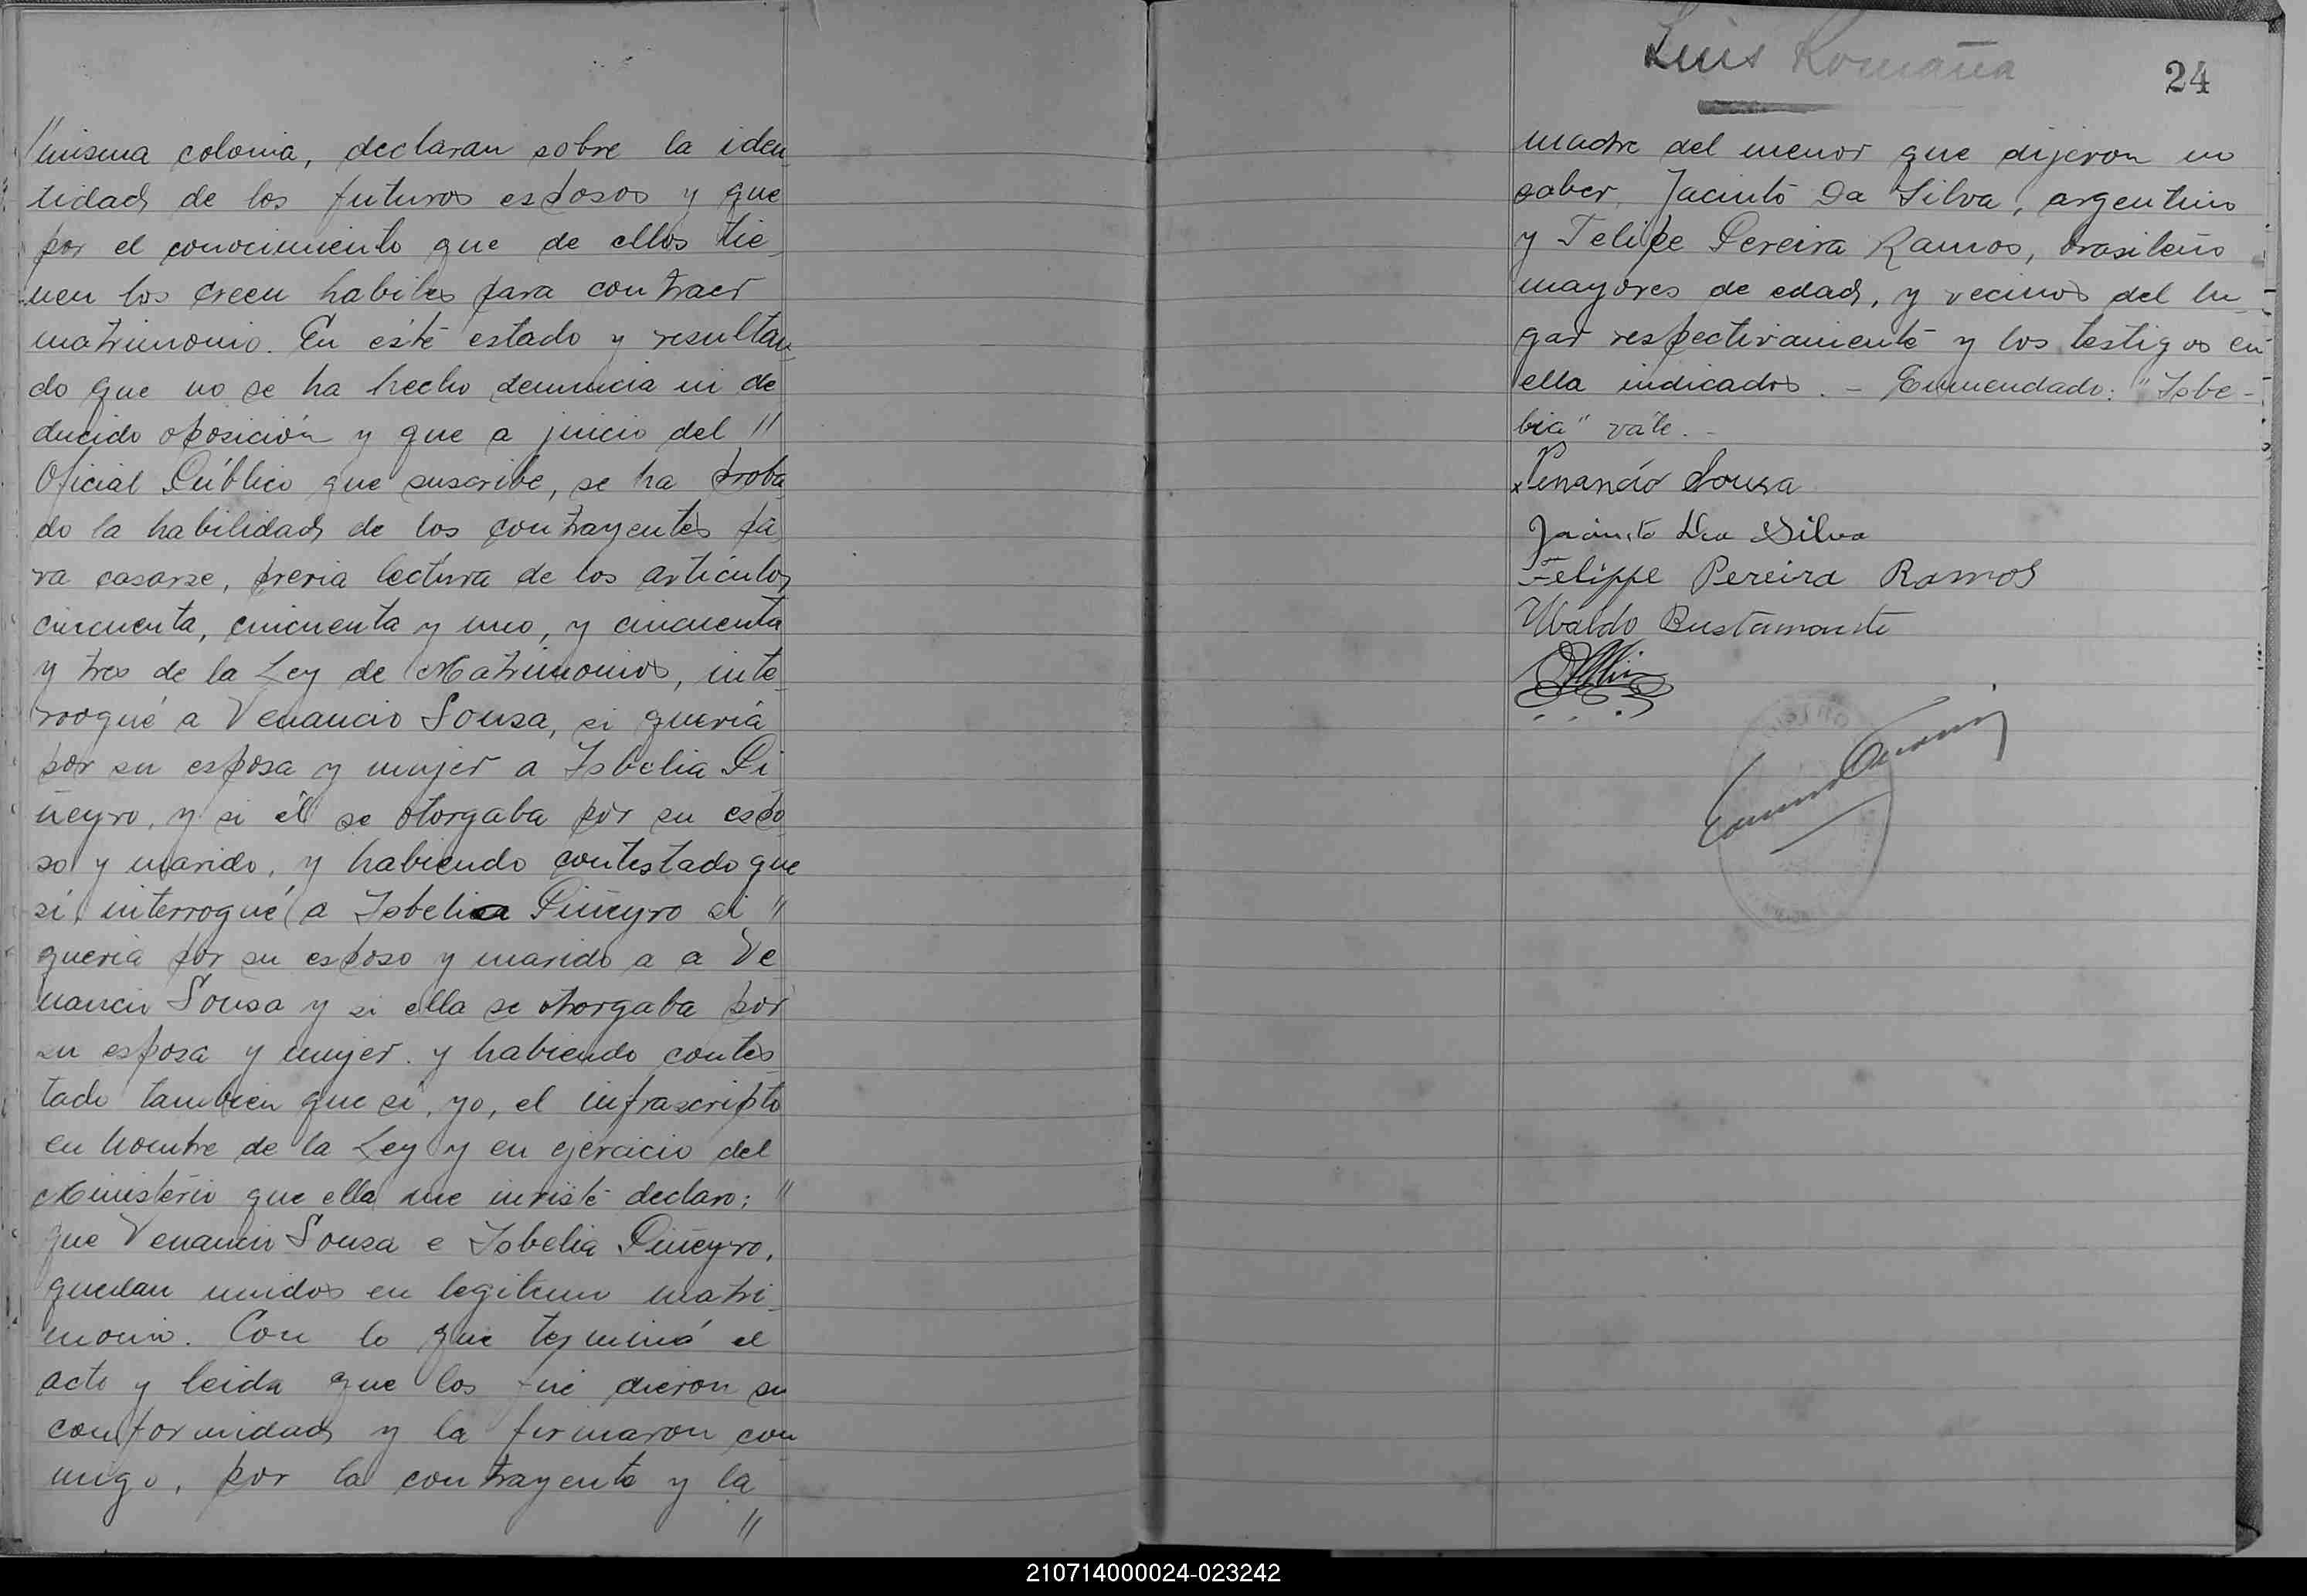 //misma colonia, declaran sobre la iden
tidad de los futuros esposos y que
por el conocimiento que de ellos tie-
nen los creen habiles para contraer
matrimonio. En éste estado y resultan
do que no se ha hecho denuncia ni de
ducido oposición y que a juicio del //
Oficial Público que suscribe, se ha proba
do la habilidad de los contrayentes pa
ra casarse, previa lectura de los articulos
cincuenta, cincuenta y uno, y cincuenta
y tres de la Ley de Matrimonios, inte-
rrogué a Venancio Sousa, si queria
por su esposa y mujer a Isbelia Pi
ñeyro, y si él se otorgaba por su espo
so y marido, y habiendo contestado que
si, interrogué a Isbelia Piñeyro si //
queria por su esposo y marido a a Ve
nancio Sousa y si ella se otorgaba por
su esposa y mujer. y habiendo contes-
tado tambien que si, yo, el infrascripto
en nombre de la Ley y en ejercicio del
Ministerio que ella me inviste declaro; //
que Venancio Sousa e Isbelia Piñeyro,
quedan unidos en legitimo matri-
monio. Con lo que terminó el
acto y leida que los fué dieron su
conformidad y la firmaron con
migo, por la contrayente y la
//
Luis Romaña
24
madre del menor que dijeron no
saber, Jacinto Da Silva, argentino
y Felipe Pereira Ramos, brasileño
mayores de edad, y vecinos del lu-
gar respectivamente y los testigos en
ella indicados. - Enmendado: "Isbe-
lia" vale. -
x Venancio Sousa
Jacinto Da Silva
Felippe Pereira Ramos
Ubaldo Bustamante
210714000024-023242